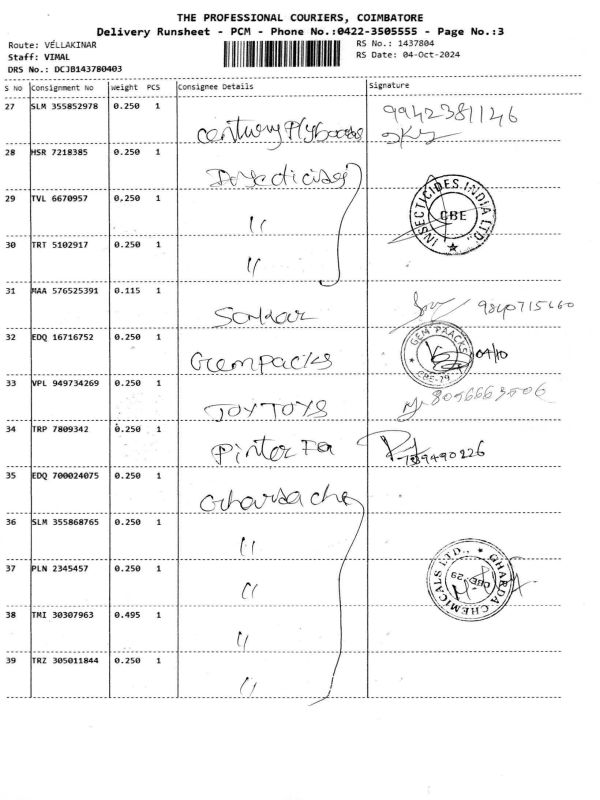 THE PROFESSIONAL COURIERS, COIMBATORE
Delivery Runsheet - PCM - Phone No.:0422-3505555 - Page No.:3
Route: VELLAKINAR
RS No.: 1437804
Staff: VIMAL
RS Date: 04-Oct-2024
DRS No.: DCJB143780403
S No Consignment No Weight PCS Consignee Details Signature
27 SLM 355852978 0.250 1
Century Plyboards 9942381146
28 HSR 7218385 0.250 1
Insecticides
29 TVL 6670957 0.250 1
" INSECTICIDES INDIA LTD., CBE
30 TRT 5102917 0.250 1
"
31 MAA 576525391 0.115 1
9840715660
32 EDQ 16716752 0.250 1
Gempacks GEM PAACKS CBE-29 04/10
33 VPL 949734269 0.250 1
JOYTOYS 8056663506
34 TRP 7809342 0.250 1
Pinter Pa 789490226
35 EDQ 700024075 0.250 1
Gharda che
36 SLM 355868765 0.250 1
"
37 PLN 2345457 0.250 1
" GHARDA CHEMICALS LTD., CBE 29
38 TMI 30307963 0.495 1
"
39 TRZ 305011844 0.250 1
"